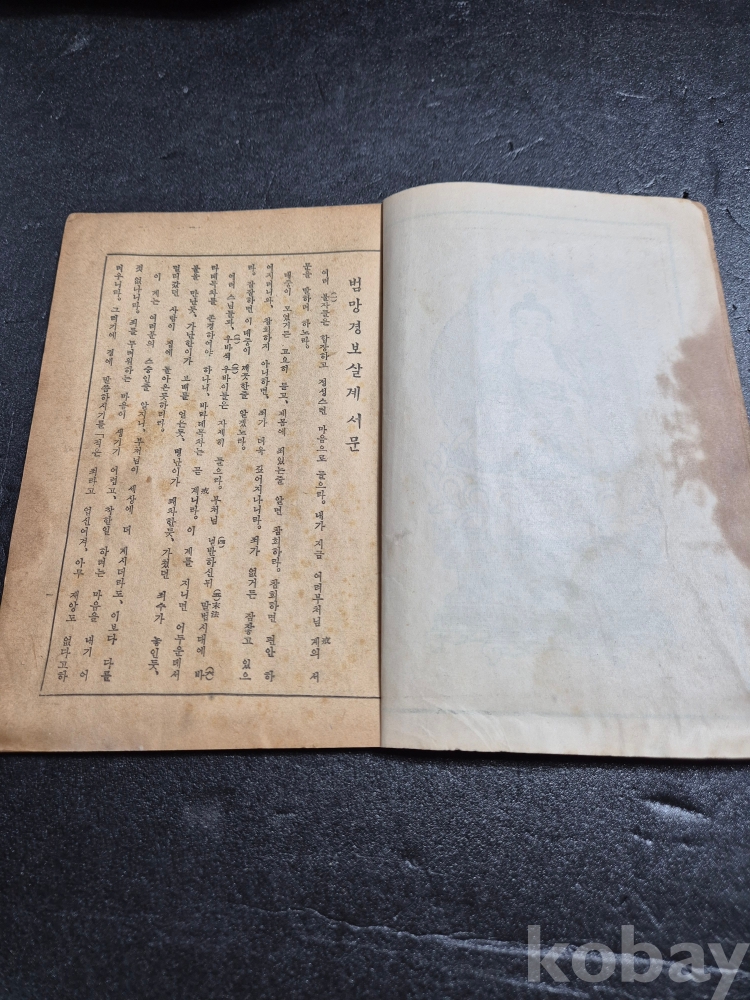 범망경보살계서문
여러 불자들은 합장하고 정성스런 마음으로 들으라。 내가 지금 여러부처님 계의 서
(一) 戒
문을 말하려 하노라。
대중이 모였거든 고요히 듣고、 제몸에 죄있는줄 알면 참회하라。 참회하면 편안 하
어지려니와、 참회하지 아니하면、 죄가 더욱 깊어지나니라。 죄가 없거든 잠잖고 있으
라。 잠잠하면 이 대중이 깨끗한줄 알겠노라。
여러 스님들과、 우바새 우바이들은 자세히 들으라。 부처님 넘반하신뒤 말법시대에 바
(二) (三) (四) (五)末法 (六)
라제목차를 존경하여야 하나니、 바라제목차는 곧 계니라。 이 계를 지니면 어두운데서
戒
불을 만난듯、 가난한이가 보배를 얻은듯、 병난이가 쾌차한듯、 가쳤던 죄수가 놓인듯、
멀리갔던 사람이 집에 돌아온듯하리라。
이 계는 여러분의 스승인줄 알지니、 부처님이 세상에 더 계시더라도、 이보다 다를
것 없나니라。 죄를 무서워하는 마음이 생기기 어렵고、 착한일 하려는 마음을 내기 어
려우니라。 그러기에 경에 말씀하시기를 「적은 죄라고 업신여겨、 아무 재앙도 없다고하
kobay